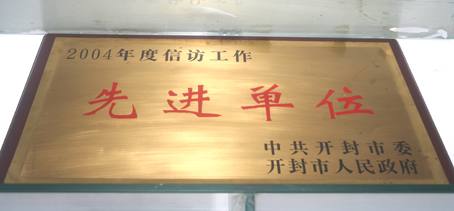 2004年度信访工作
先进单位
中共开封市委
开封市人民政府